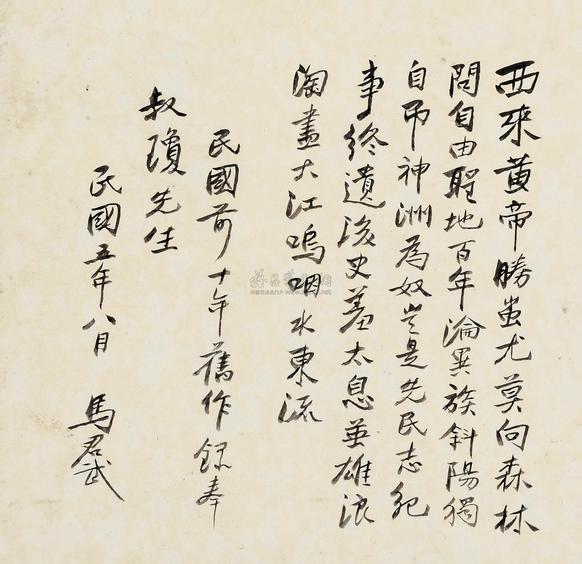 西來黄帝勝蚩尤莫向森林
問自由聖地百年淪異族斜陽獨
自吊神洲為奴豈是先民志紀
事終遺後史羞太息英雄浪
淘盡大江嗚咽水東流
民國前十年舊作録奉
叔瓊先生
民國五年八月 馬君武